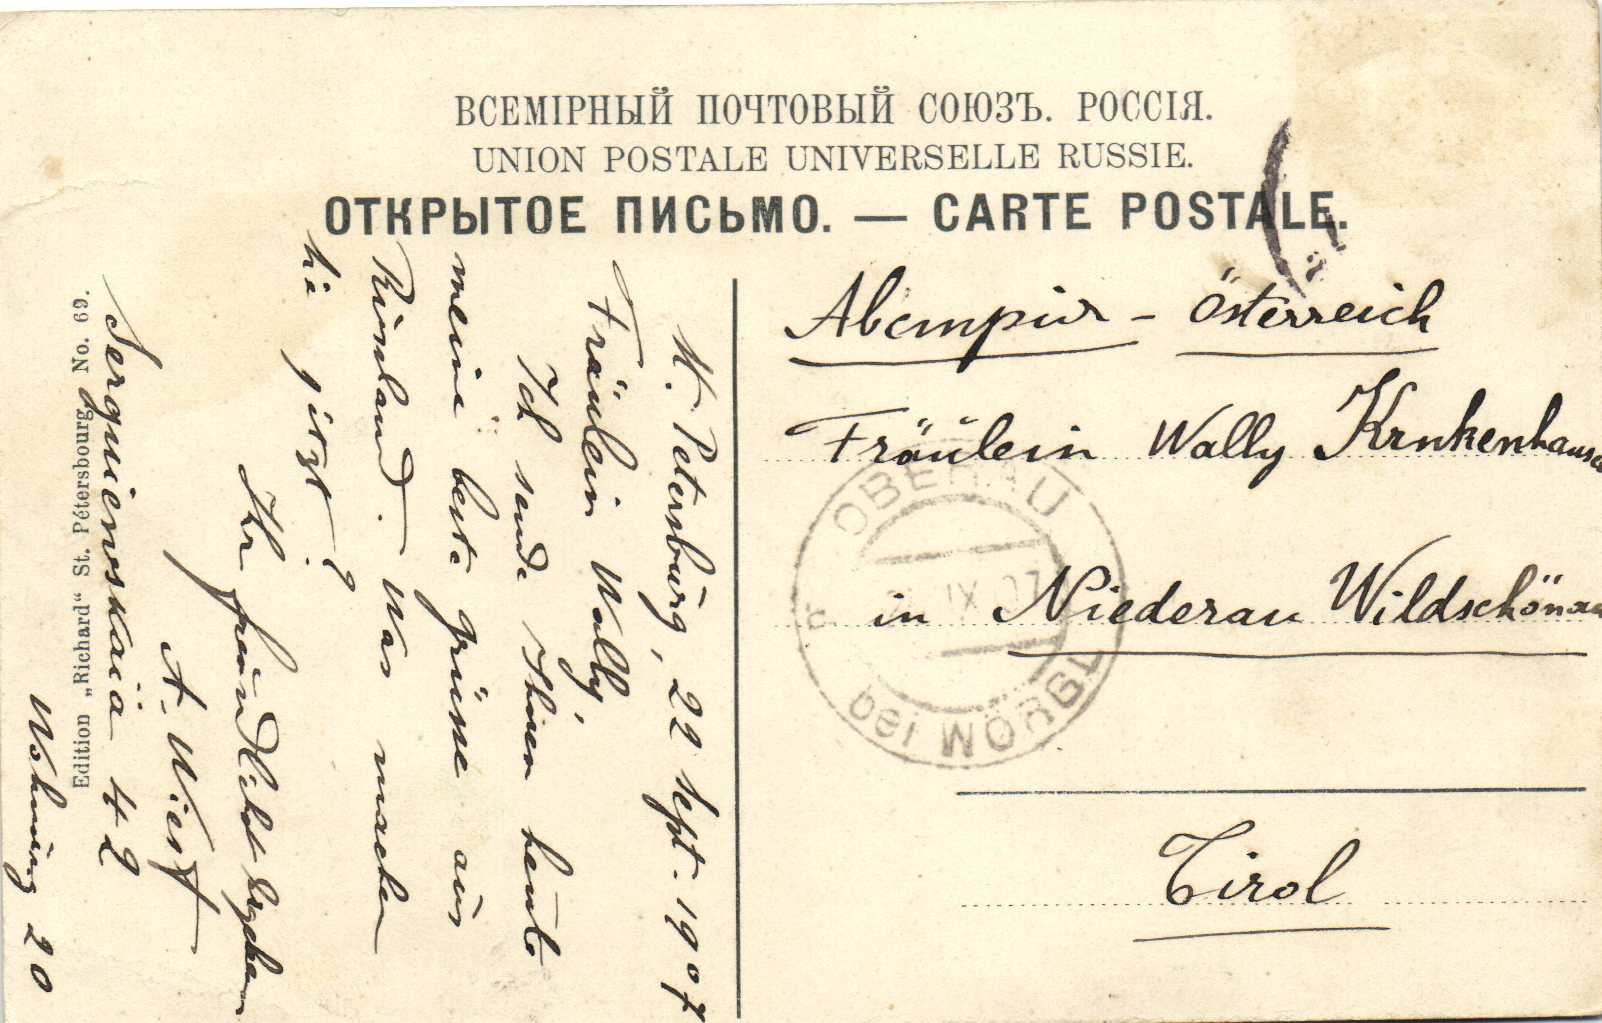 ВСЕМІРНЫЙ ПОЧТОВЫЙ СОЮЗЪ. РОССІЯ.
UNION POSTALE UNIVERSELLE RUSSIE.
ОТКРЫТОЕ ПИСЬМО. — CARTE POSTALE.
Österreich
Fräulein Wally
in Niederau Wildschönau
Tirol
OBERAU
IX 07
bei WÖRGL
St. Petersburg, 22 Sept. 1907
Fräulein Wally,
Ich sende Ihnen heute
meine beste grüsse aus
Russland. Was machen
Sie jetzt?
Ihr
A. Wiest
Serguievskaïa 42
Wohnung 20
Edition „Richard“ St. Pétersbourg No. 69.